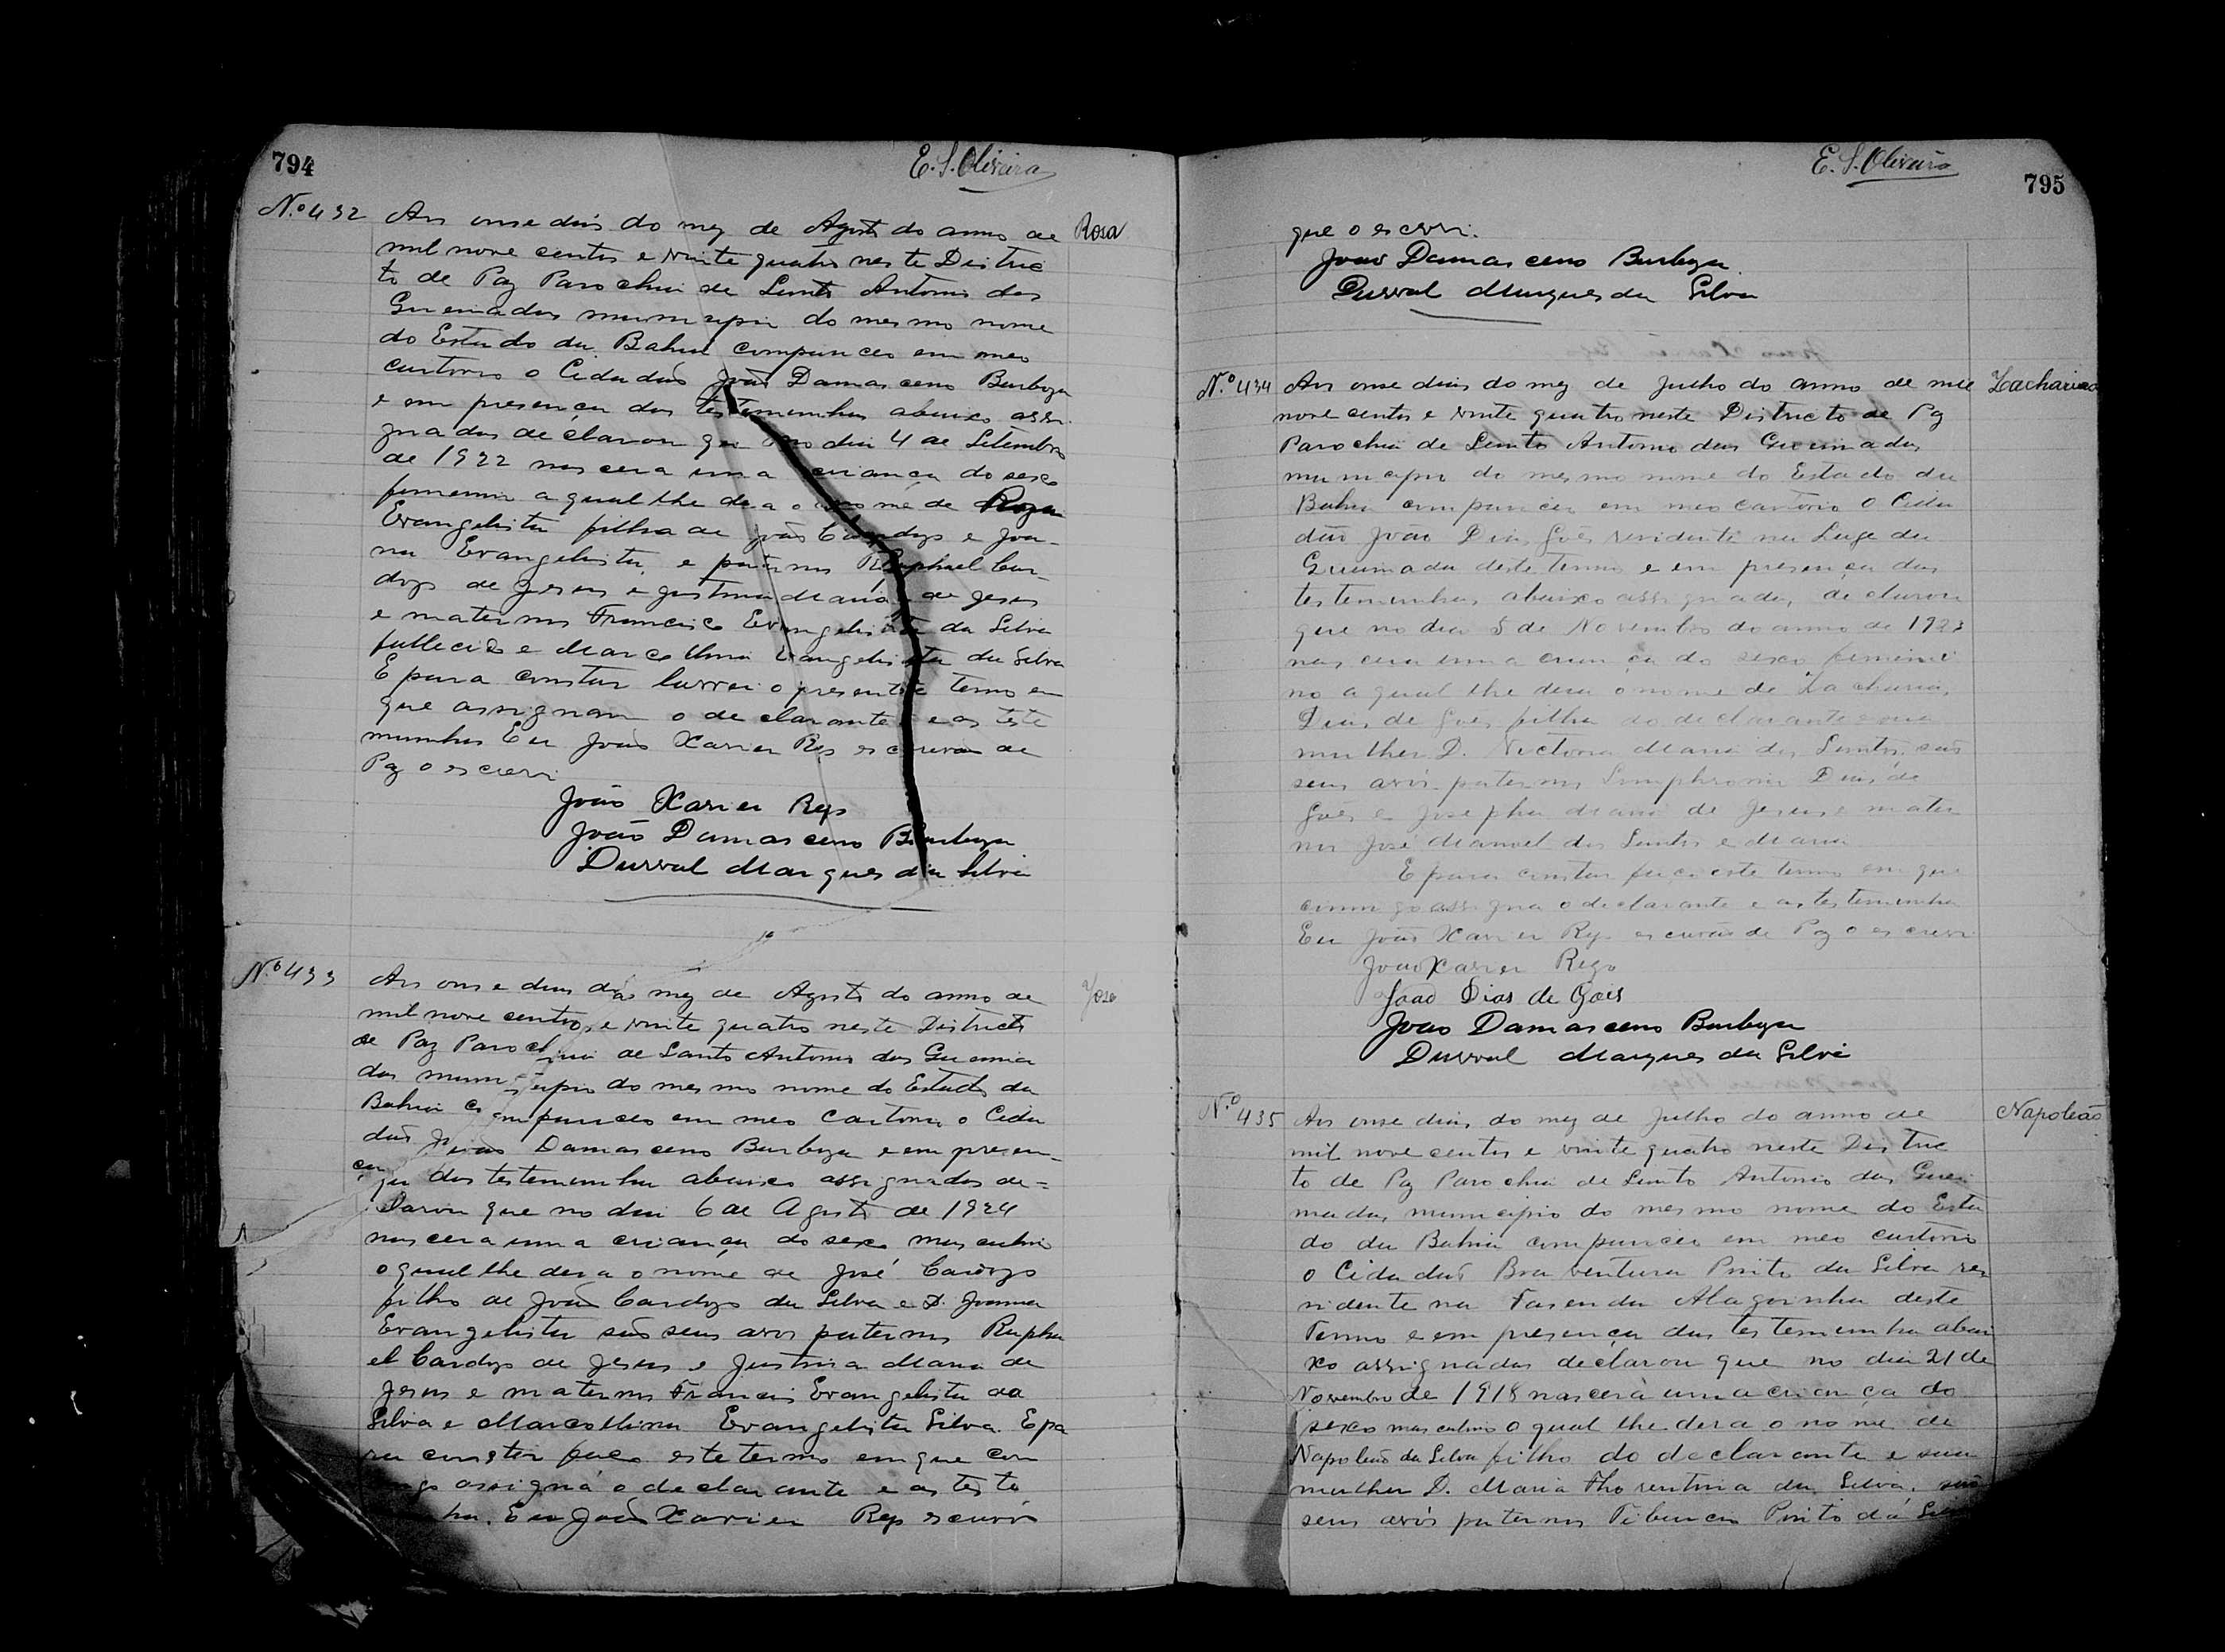 794
E. S. Oliveira
Nº 432 Aos onse dias do mez de Agosto do anno de Rosa
mil nove centos e vinte quatro neste Distric
to de Paz Parochia de Santo Antonio das
Queimadas municipio do mesmo nome
do Estado da Bahia compareceo em meo
cartorio o Cidadão João Damasceno Barboza
e em presença das testemunhas abaixo assi
gnadas declarou que no dia 4 de Setembro
de 1922 nascera uma criança do sexo
femenino a qual lhe dera o nome de Roza
Evangelista filha de João Cardozo e Joan-
na Evangelista, e paternos Raphael Car-
dozo de Jesus e Justina Maria de Jesus
e maternos Francisco Evangelista da Silva
fallecido e Marcollina Evangelista da Silva
E para constar lavrei o presente termo em
que assignam o declarante e as teste
munhas Eu João Xavier Rego escrivão de
Paz o escrevi
João Xavier Rego
João Damasceno Barboza
Durval Marques da Silva
Nº 433 Aos onse dias do mez de Agosto do anno de José
mil nove centos e vinte quatro neste Districto
de Paz Parochia de Santo Antonio das Queima
das municipio do mesmo nome do Estado da
Bahia compareceo em meo Cartorio o Cida
dão João Damasceno Barboza e em presen-
ça das testemunha abaixo assignadas de=
clarou que no dia 6 de Agosto de 1924
nascera uma criança do sexo masculino
o qual lhe dera o nome de José Cardozo
filho de João Cardozo da Silva e D. Joanna
Evangelista são seus avos paternos Rapha
el Cardozo de Jesus e Justina Maria de
Jesus e maternos Francisco Evangelista da
Silva e Marcollina Evangelista Silva. E pa
ra constar faço este termo em que com
migo assigna o declarante e as teste
nha. Eu João Xavier Rego escrivão
E. S. Oliveira
795
que o escrevi.
João Damasceno Barboza
Durval Marques da Silva
Nº 434 Aos onse dias do mez de Julho do anno de mil Zacharias
nove centos e vinte quatro neste Districto de Paz
Parochia de Santo Antonio das Queimadas
municipio do mesmo nome do Estado da
Bahia compareceu em meo cartorio o Cida
dão João Dias Goes residente na Lage da
Queimada deste termo e em presença das
testemunhas abaixo assignadas, declarou
que no dia 5 de Novembro do anno de 1923
nascera uma criança do sexo femini
no a qual lhe dera o nome de Zacharias
Dias de Goes filha do declarante e sua
mulher D. Victoria Maria dos Santos, são
seus avós paternos Simphronio Dias de
Goes e Josepha Maria de Jesus e mater
nos José Manoel dos Santos e Maria
E para constar faço este termo em que
commigo assigna o declarante e as testemunha
Eu João Xavier Rego escrivão de Paz o escrevi
João Xavier Rego
João Dias de Goes
João Damasceno Barboza
Durval Marques da Silva
Nº 435 Aos onse dias do mez de Julho do anno de Napoleão
mil nove centos e vinte quatro neste Distric
to de Paz Parochia de Santo Antonio das Quei
madas, municipio do mesmo nome do Esta
do da Bahia compareceo em meo cartorio
o Cidadão Boaventura Pinto da Silva re
sidente na Fasenda Alagoinha deste
Termo e em presença das testemunha abai
xo assignadas declarou que no dia 21 de
Novembro de 1918 nascera uma criança do
sexo masculino o qual lhe dera o nome de
Napoleão da Silva filho do declarante e sua
mulher D. Maria Florentina da Silva, são
seus avós paternos Tiburcio Pinto da Silva